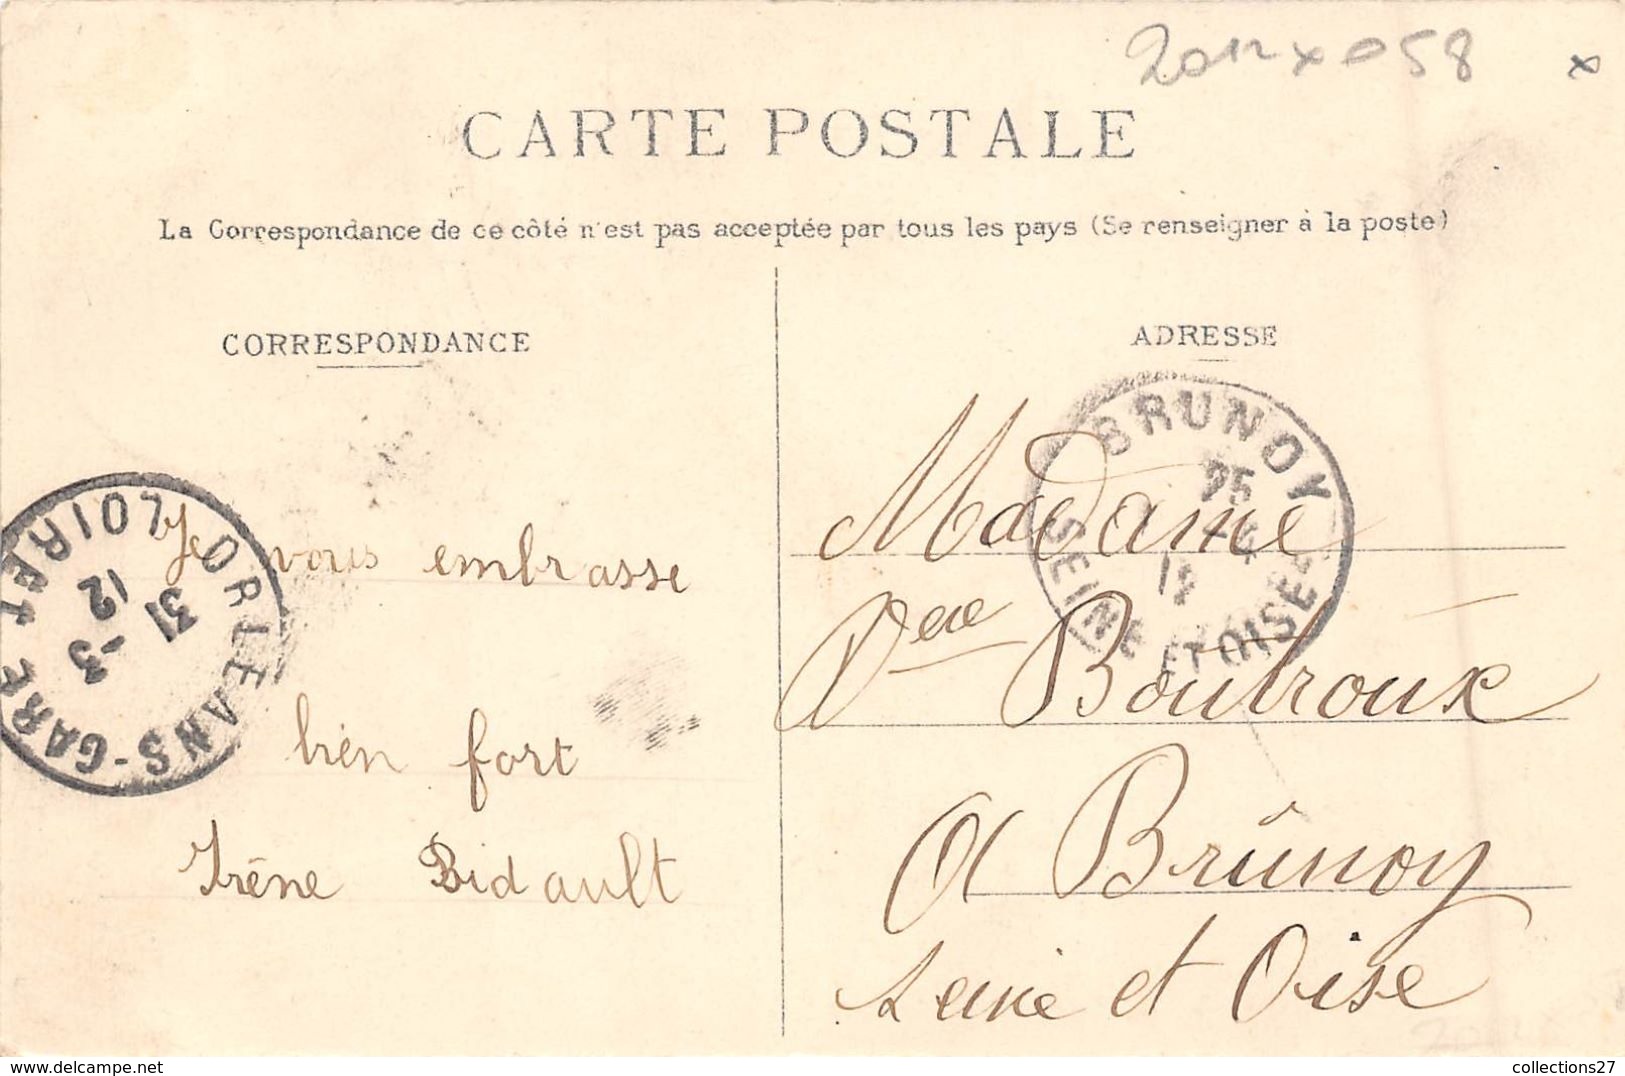 2012 x 058
x
CARTE POSTALE
La Correspondance de ce côté n'est pas acceptée par tous les pays (Se renseigner à la poste)
CORRESPONDANCE
ADRESSE
Je vous embrasse
bien fort
Irène Bidault
ORLEANS-GARE LOIRET
31 -3
12
BRUNOY
SEINE ET OISE
Madame
Vve Boutroux
A Brûnoy
Seine et Oise
collections27